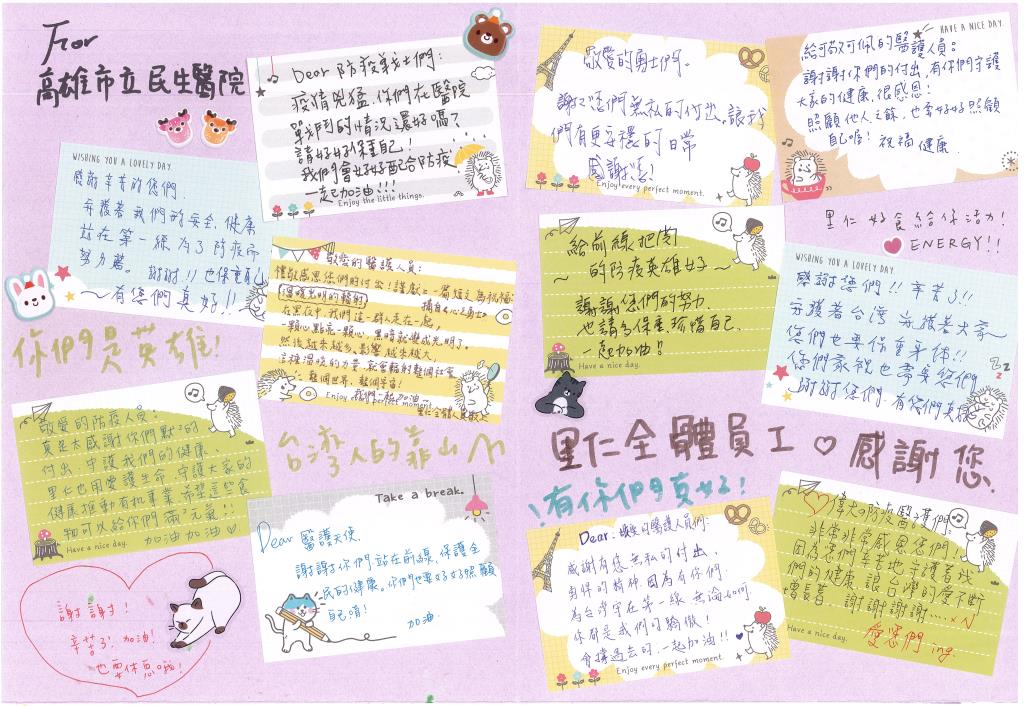 For
高雄市立民生醫院
Dear 防疫戰士們:
疫情兇猛,你們在醫院
戰鬥的情況還好嗎?
請好好保重自己!
我們會好好配合防疫
一起加油!!!
Enjoy the little things.
WISHING YOU A LOVELY DAY
感謝辛苦的您們
守護著我們的安全、健康
站在第一線為了防疫而
努力著。謝謝!!也保重自己
～有您們真好!!
你們是英雄!
敬愛的醫護人員:
僅致感恩您們的付出!謹獻上一篇短文為祝福
溫暖光明的輻射
在黑夜中,我們這一群人走在一起,
一顆心點亮一顆心,黑暗就變成光明了。
然後越來越多,影響越來越大,
這種溫暖的力量,就會輻射整個社會
整個世界、整個宇宙!
我們一起加油~
Enjoy every perfect moment.
敬愛的防疫人員:
真是太感謝你們默默的
付出,守護我們的健康、
里仁也用愛護生命、守護大家的
健康推動有机事業,希望這些食
物可以給你們滿元氣!!
加油加油♡
Have a nice day.
台灣人的靠山
Take a break.
Dear 醫護天使
謝謝你們站在前線,保護全
民的健康。你們也要好好照顧
自己唷!
加油.
謝謝!
辛苦了.加油!
也要休息哦!
敬愛的勇士們。
謝謝您們無私的付出,讓我
們有更安穩的日常
感謝您!
Enjoy every perfect moment.
HAVE A NICE DAY.
給可敬可佩的醫護人員:
謝謝你們的付出,有你們守護
大家的健康,很感恩!
照顧他人之餘,也要好好照顧
自己喔! 祝福 健康.
里仁好食給你活力!
ENERGY!!
給前線把關
的防疫英雄好～
謝謝您們的努力
也請多保重,珍惜自己.
一起加油!
Have a nice day.
WISHING YOU A LOVELY DAY
感謝您們!!辛苦了!!
守護著台灣 守護著大家～
您們也要保重身体!!
你們家祝也要
謝謝您們.有您們真好
里仁全體員工♡感謝您.
!有你們真好!
Dear.敬愛的醫護人員們:
感謝有您無私的付出、
奔得的精神.因為有你們.
為台灣守在第一線.無論如何.
你都是我們的驕傲!
會撐過去的.一起加油!!
Enjoy every perfect moment.
偉大的防疫醫護們:
非常非常感恩您們!
因為您們辛苦地守護著我
們的健康,讓台灣的愛不斷
增長著 謝謝謝謝...xN
愛您們 ing.
Have a nice day.